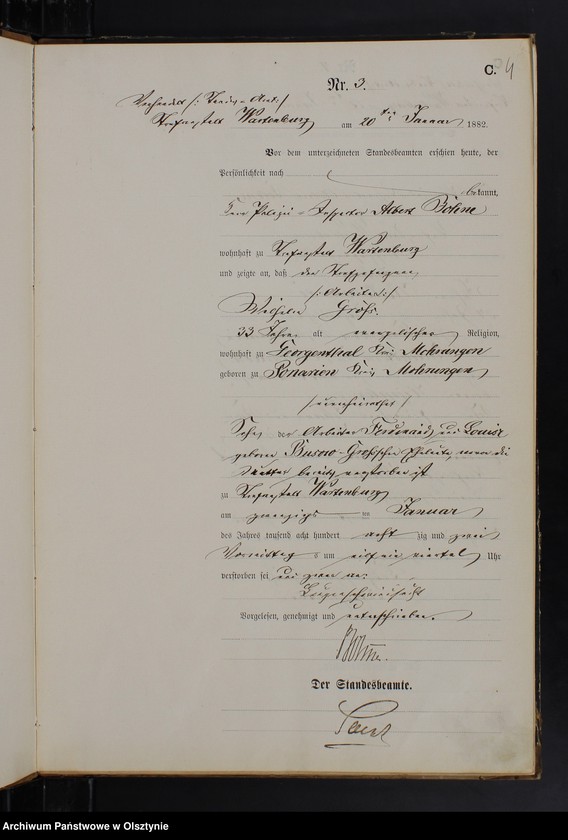 C. 4
Nr. 3.
Wartenburg am 20ten Januar 1882.
Vor dem unterzeichneten Standesbeamten erschien heute, der
Persönlichkeit nach
bekannt,
Herr Polizei-Inspector Albert Böhme
wohnhaft zu Strafanstalt Wartenburg
und zeigte an, daß der Strafgefangene
/: Arbeiter :/
Wilhelm
33 Jahre alt evangelischer Religion,
wohnhaft zu Georgenthal Kreis Mohrungen
geboren zu Ponarien Kreis Mohrungen
/unverheirathet/
Sohn der Arbeiter Ferdinand und Louise
geborene Eheleute, wovon die
Mutter bereits verstorben ist
zu Strafanstalt Wartenburg
am zwanzigsten Januar
des Jahres tausend acht hundert acht zig und zwei
Vormittags um ein viertel Uhr
verstorben sei und zwar an:
Vorgelesen, genehmigt und unterschrieben.
Böhme.
Der Standesbeamte.
Archiwum Państwowe w Olsztynie